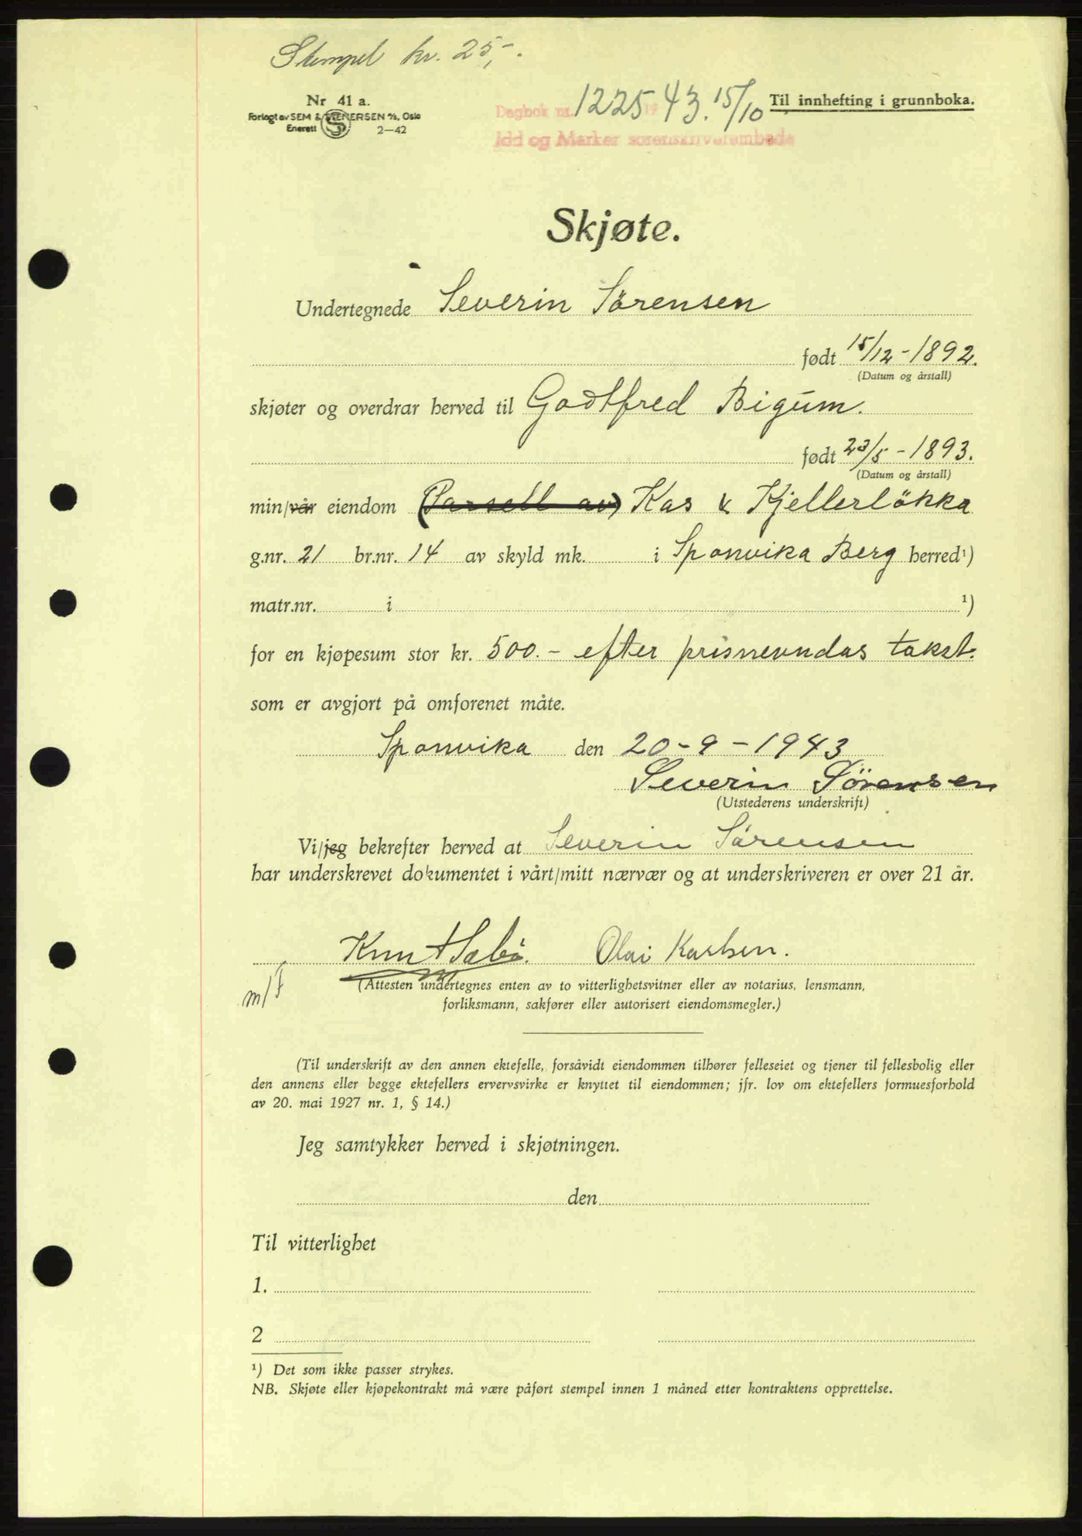 Stempel kr. 25,-.
Nr 41 a.
Forlagt av SEM & STENERSEN A/S, Oslo
Enerett 2-42
Dagbok nr. 1225 19 43. 15/10
Idd og Marker sorenskriverembede
Til innhefting i grunnboka.
Skjøte.
Undertegnede Severin Sørensen
født 15/12-1892.
(Datum og årstall)
skjøter og overdrar herved til Godtfred Bigum.
født 23/5-1893.
(Datum og årstall)
min/vår eiendom (Parsell av) Kas & Kjellerløkka
g.nr. 21 br.nr. 14 av skyld mk. i Sponvika Berg herred¹)
matr.nr. i ¹)
for en kjøpesum stor kr. 500.- efter prisnevndas takst.
som er avgjort på omforenet måte.
Sponvika den 20-9-1943
Severin Sörensen
(Utstederens underskrift)
Vi/jeg bekrefter herved at Severin Sørensen
har underskrevet dokumentet i vårt/mitt nærvær og at underskriveren er over 21 år.
Knut Sæbö. Olai Karlsen.
m/F
(Attesten undertegnes enten av to vitterlighetsvitner eller av notarius, lensmann,
forliksmann, sakfører eller autorisert eiendomsmegler.)
(Til underskrift av den annen ektefelle, forsåvidt eiendommen tilhører felleseiet og tjener til fellesbolig eller
den annens eller begge ektefellers ervervsvirke er knyttet til eiendommen; jfr. lov om ektefellers formuesforhold
av 20. mai 1927 nr. 1, § 14.)
Jeg samtykker herved i skjøtningen.
den
Til vitterlighet
1.
2
¹) Det som ikke passer strykes.
NB. Skjøte eller kjøpekontrakt må være påført stempel innen 1 måned etter kontraktens opprettelse.